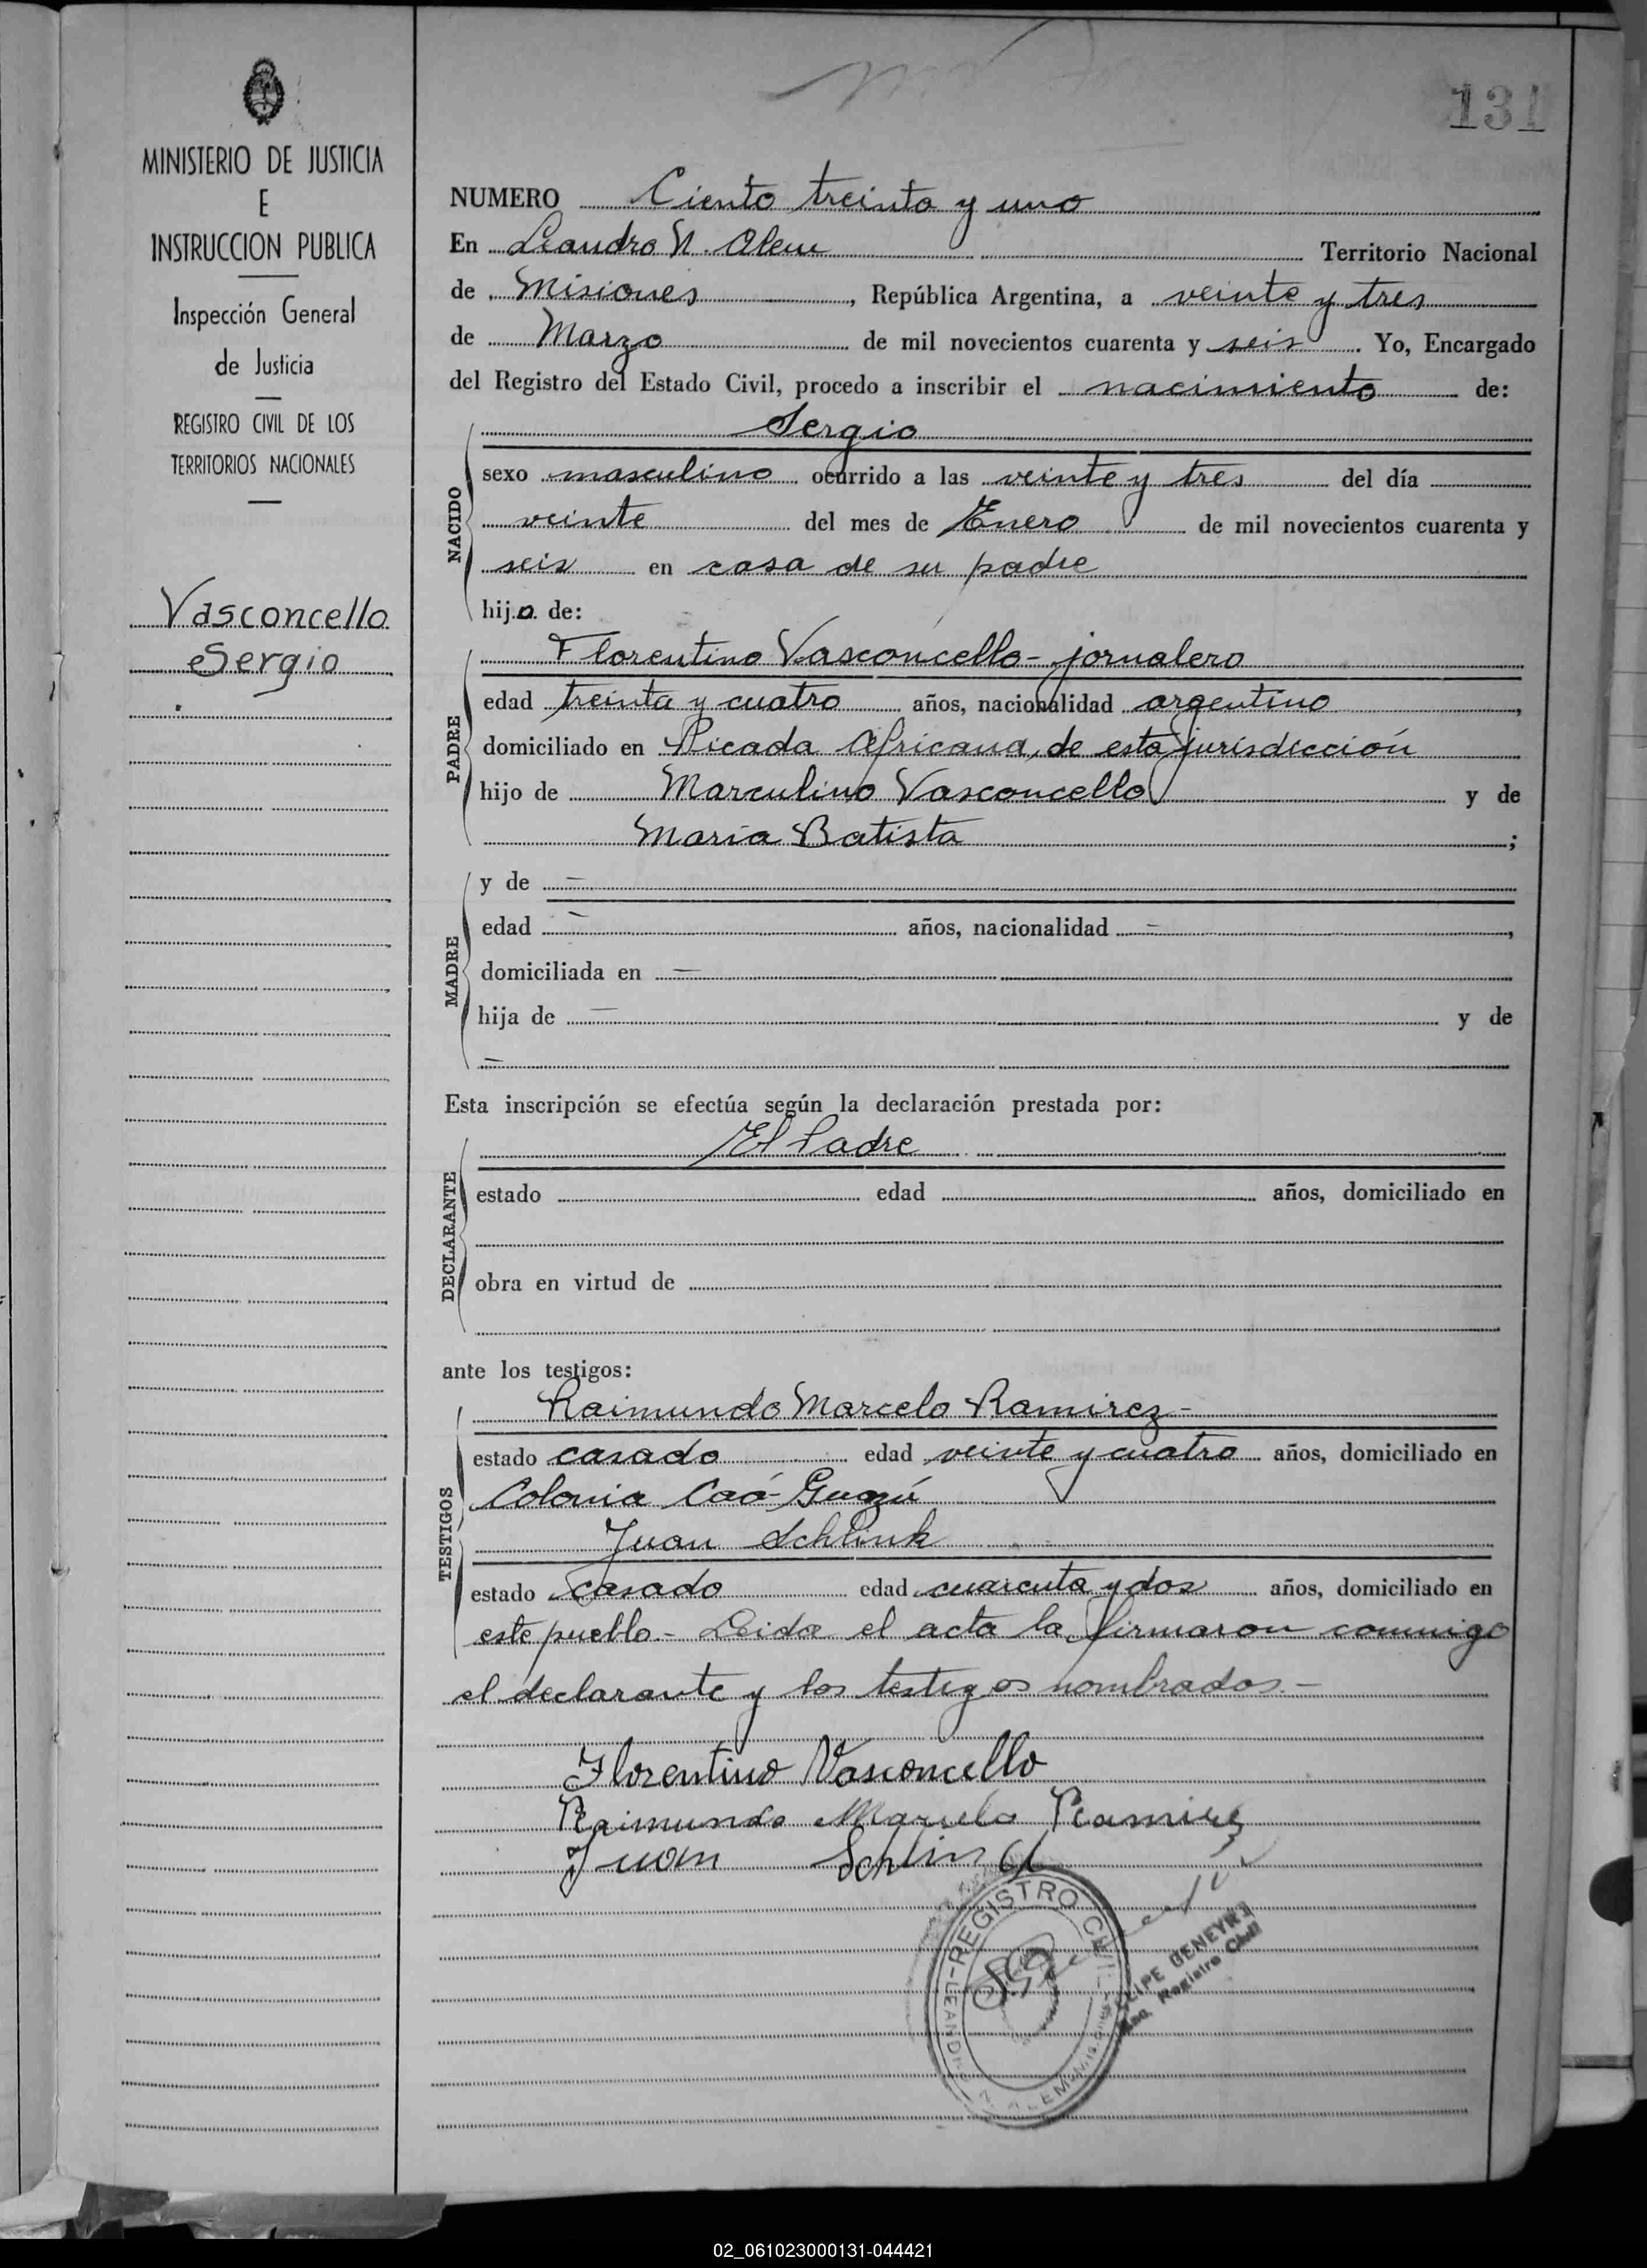 131
MINISTERIO DE JUSTICIA
E
INSTRUCCION PUBLICA
Inspección General
de Justicia
REGISTRO CIVIL DE LOS
TERRITORIOS NACIONALES
Vasconcello
Sergio
NUMERO Ciento treinta y uno
En Leandro N. Alem Territorio Nacional
de Misiones, República Argentina, a veinte y tres
de Marzo de mil novecientos cuarenta y seis. Yo, Encargado
del Registro del Estado Civil, procedo a inscribir el nacimiento de:
NACIDO
Sergio
sexo masculino ocurrido a las veinte y tres del día
veinte del mes de Enero de mil novecientos cuarenta y
seis en casa de su padre
hijo de:
PADRE
Florentino Vasconcello - jornalero
edad treinta y cuatro años, nacionalidad argentino,
domiciliado en Picada Africana, de esta jurisdicción
hijo de Marculino Vasconcello y de
María Batista;
MADRE
y de —
edad — años, nacionalidad —,
domiciliada en —
hija de — y de
—
Esta inscripción se efectúa según la declaración prestada por:
DECLARANTE
El Padre
estado edad años, domiciliado en
obra en virtud de
ante los testigos:
TESTIGOS
Raimundo Marcelo Ramirez -
estado casado edad veinte y cuatro años, domiciliado en
Colonia Caá-Guazú
Juan Schlink
estado casado edad cuarenta y dos años, domiciliado en
este pueblo.- Leida el acta la firmaron conmigo
el declarante y los testigos nombrados.-
Florentino Vasconcello
Raimundo Marcelo Ramirez
Juan
REGISTRO CIVIL
LEANDRO N. ALEM
Registro Civil
02_061023000131-044421